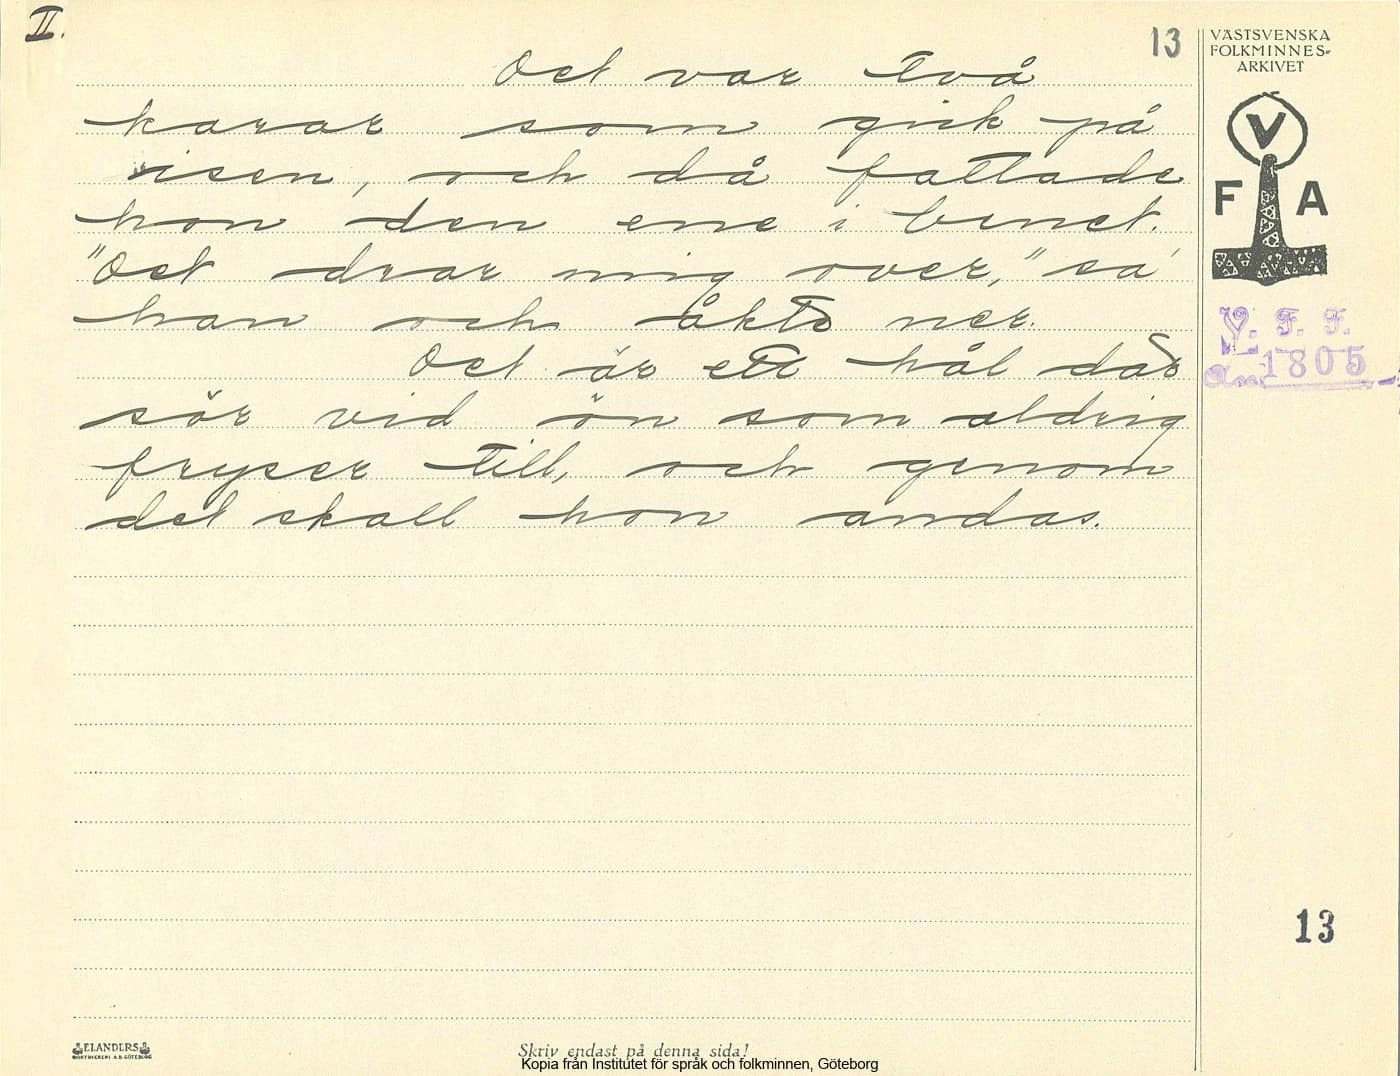 II.
13
VÄSTSVENSKA
FOLKMINNES-
ARKIVET
V
F A
Det var två
karar som gick på
isen, och då fattade
hon den ene i benet.
"Det drar mig över," sa'
han och åkte ner.
Det är ett hål där
sör vid ön som aldrig
fryser till, och genom
det skall hon andas.
V. F. F.
1805
13
ELANDERS
BOKTRYCKERI A.B. GÖTEBORG
Skriv endast på denna sida!
Kopia från Institutet för språk och folkminnen, Göteborg